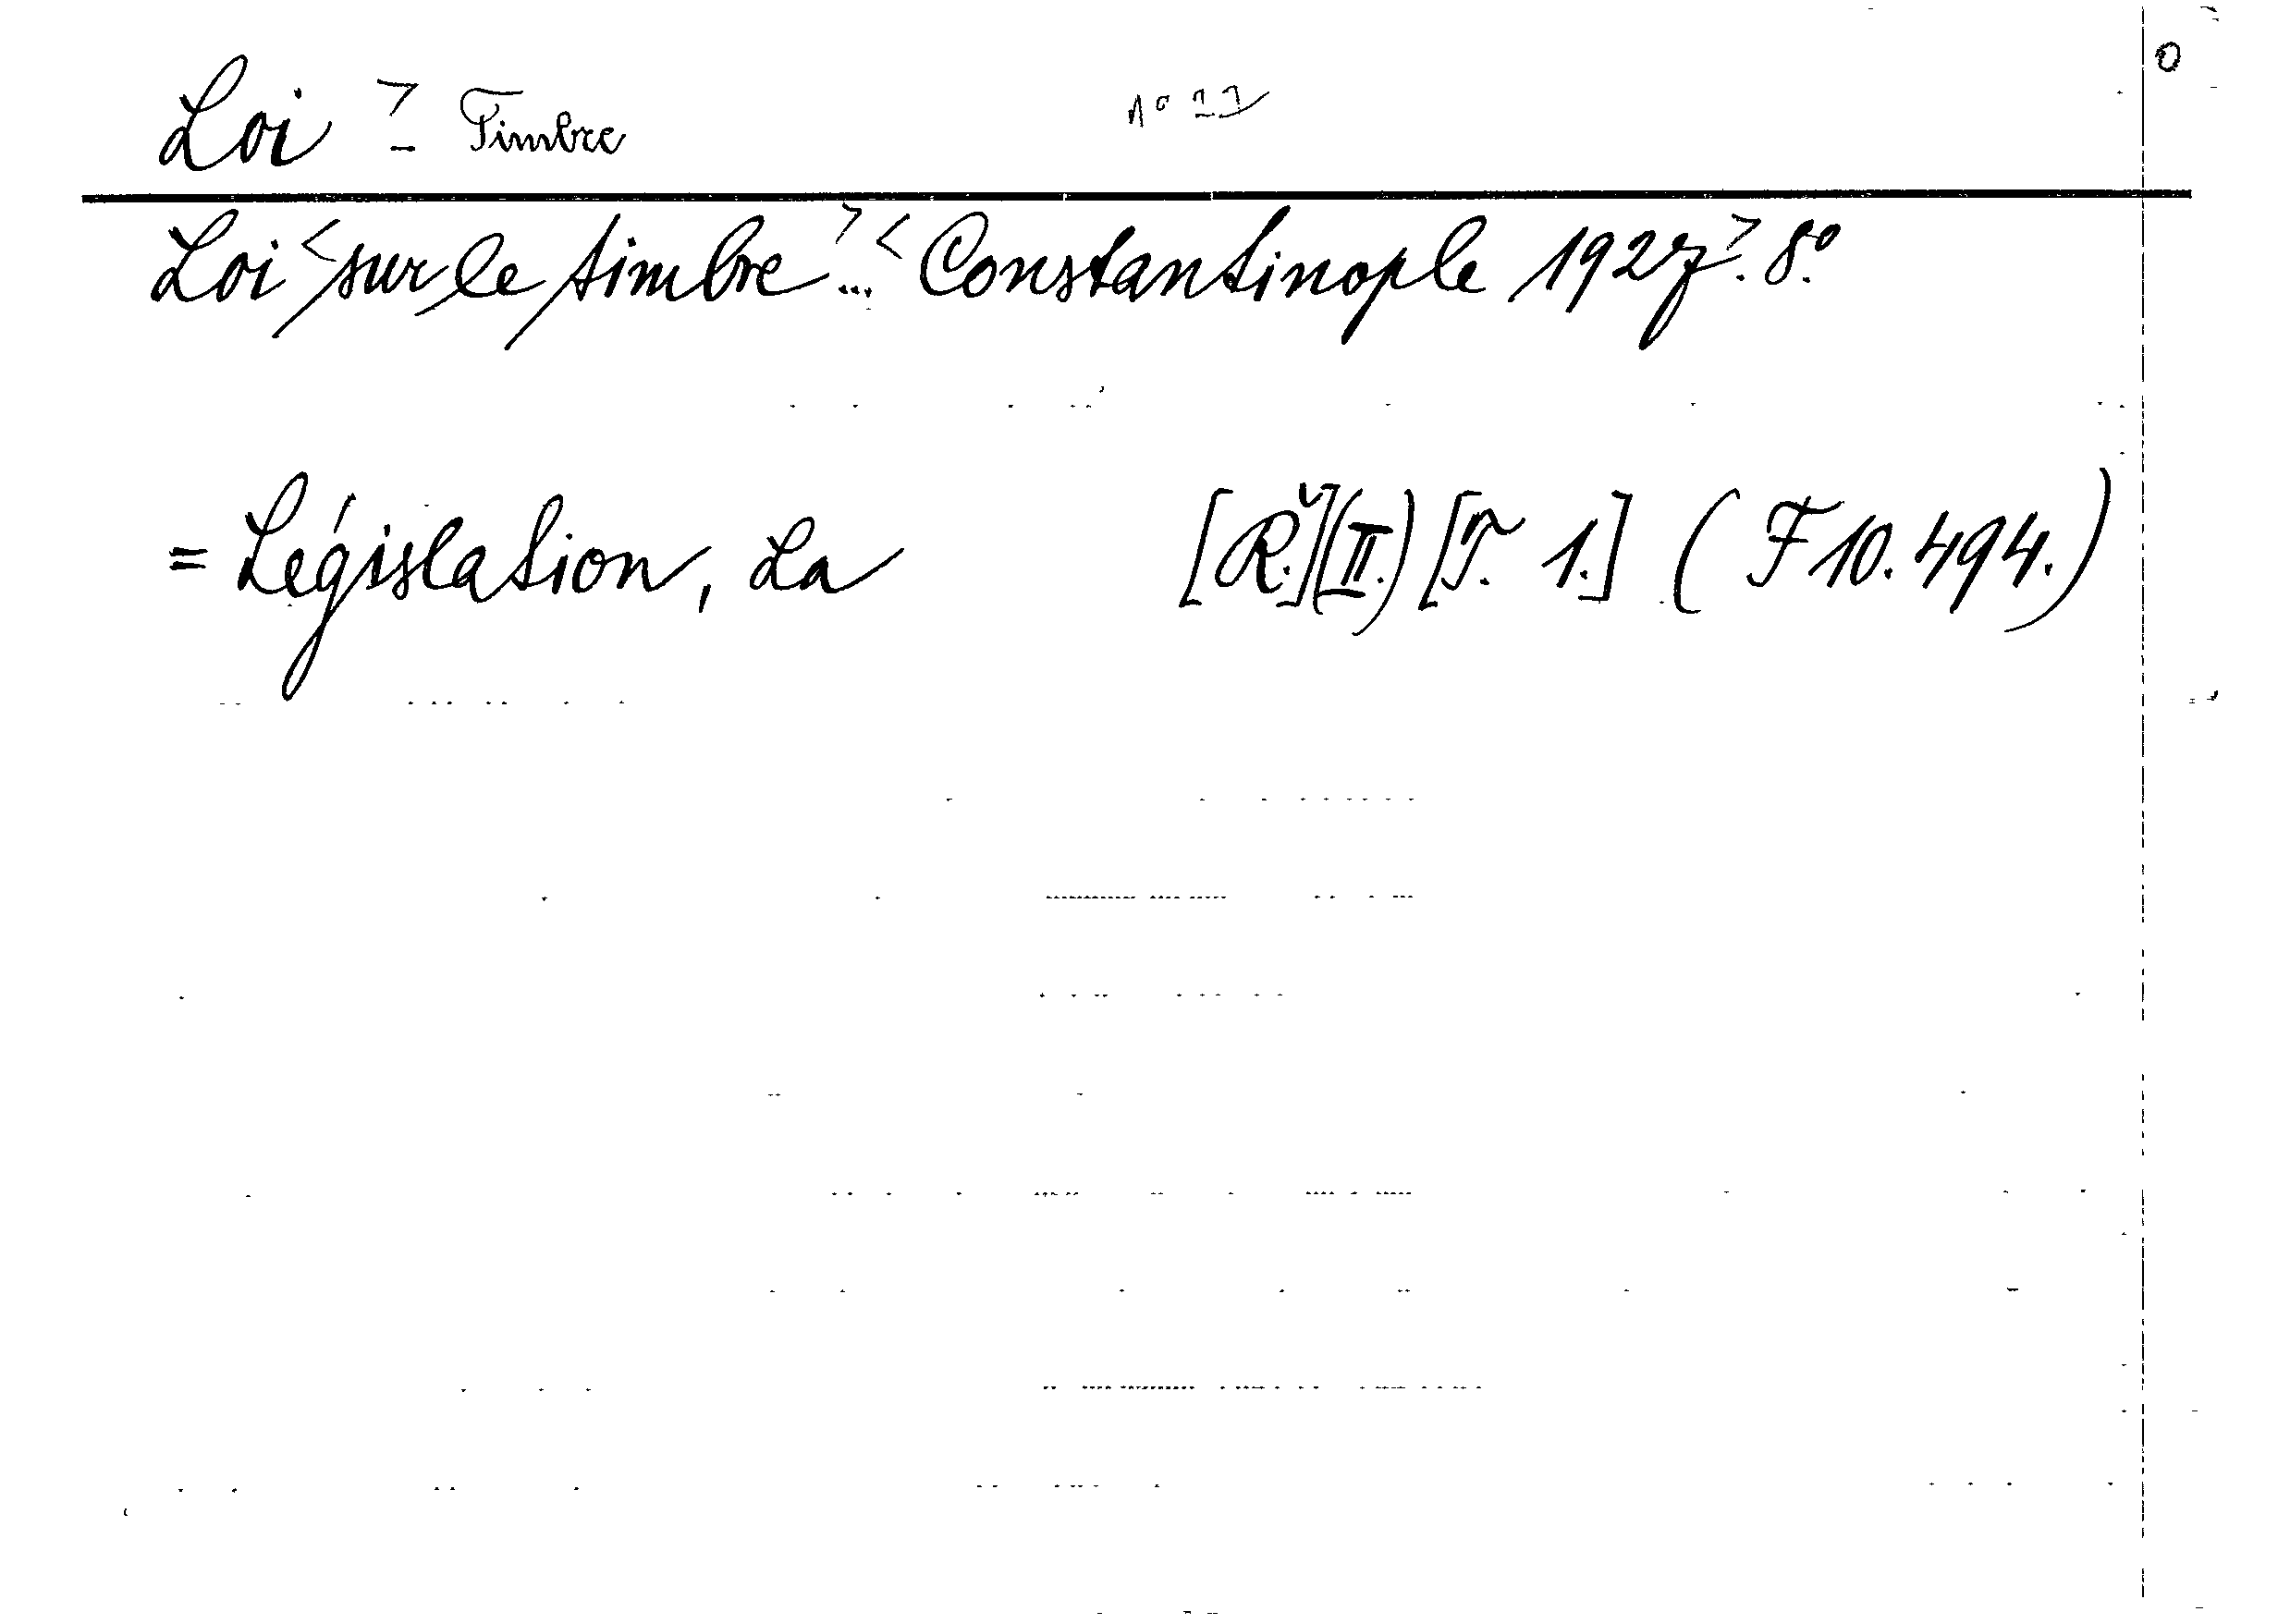 Loi > - Timbre
O
Loi <sur le timbre>... <Constantinople 1927>. 8.º
= Législation, La [R.](II.) [T. 1.] (F 10.494.)